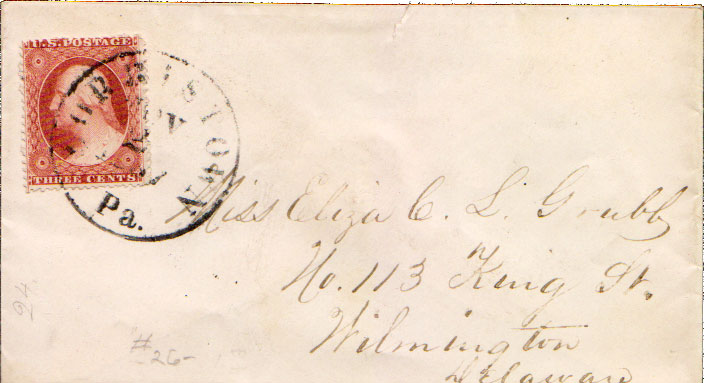 U.S. POSTAGE
THREE CENTS
NORRISTOWN
Pa.
Miss Eliza C. L. Grubb
No. 113 King St.
Wilmington
Delaware
24
#26-